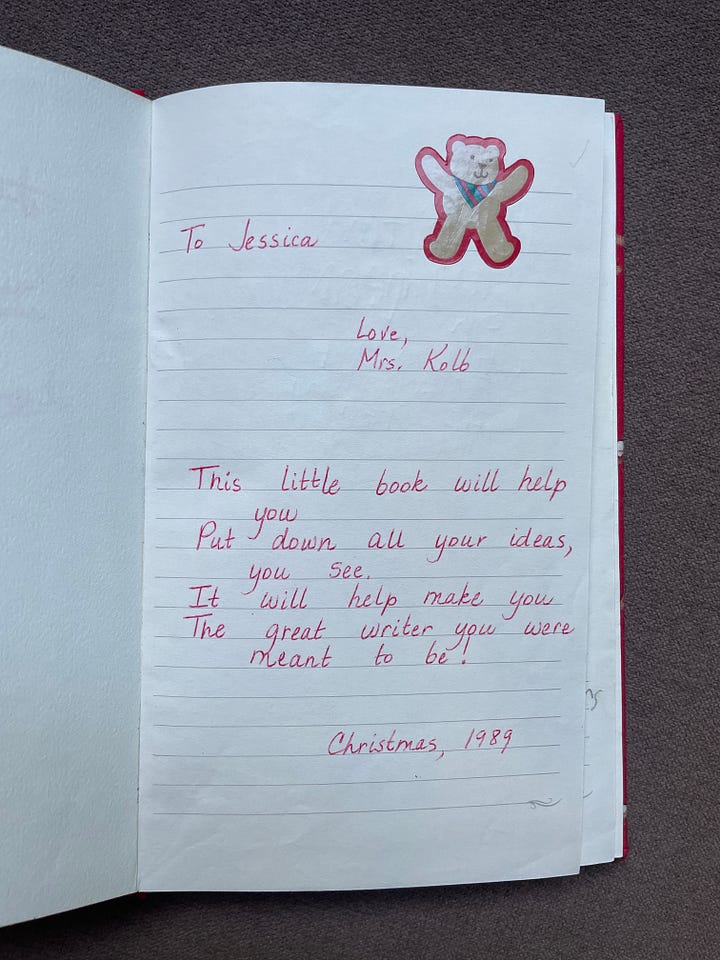 To Jessica
Love,
Mrs. Kolb
This little book will help
you
Put down all your ideas,
you see.
It will help make you
The great writer you were
meant to be!
Christmas, 1989